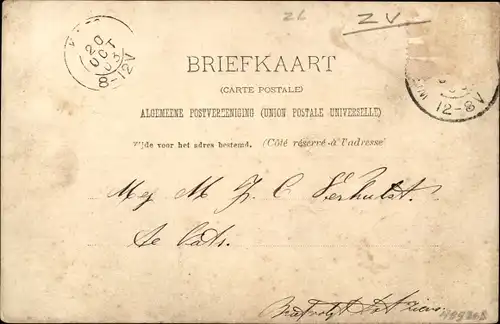 ZL ZV
20
OCT
03
8-12V
12-8V
BRIEFKAART
(CARTE POSTALE)
ALGEMEENE POSTVEREENIGING (UNION POSTALE UNIVERSELLE)
Zijde voor het adres bestemd. (Côté réservé à l'adresse)
Mej M J. C Verhulst.
te Cats.